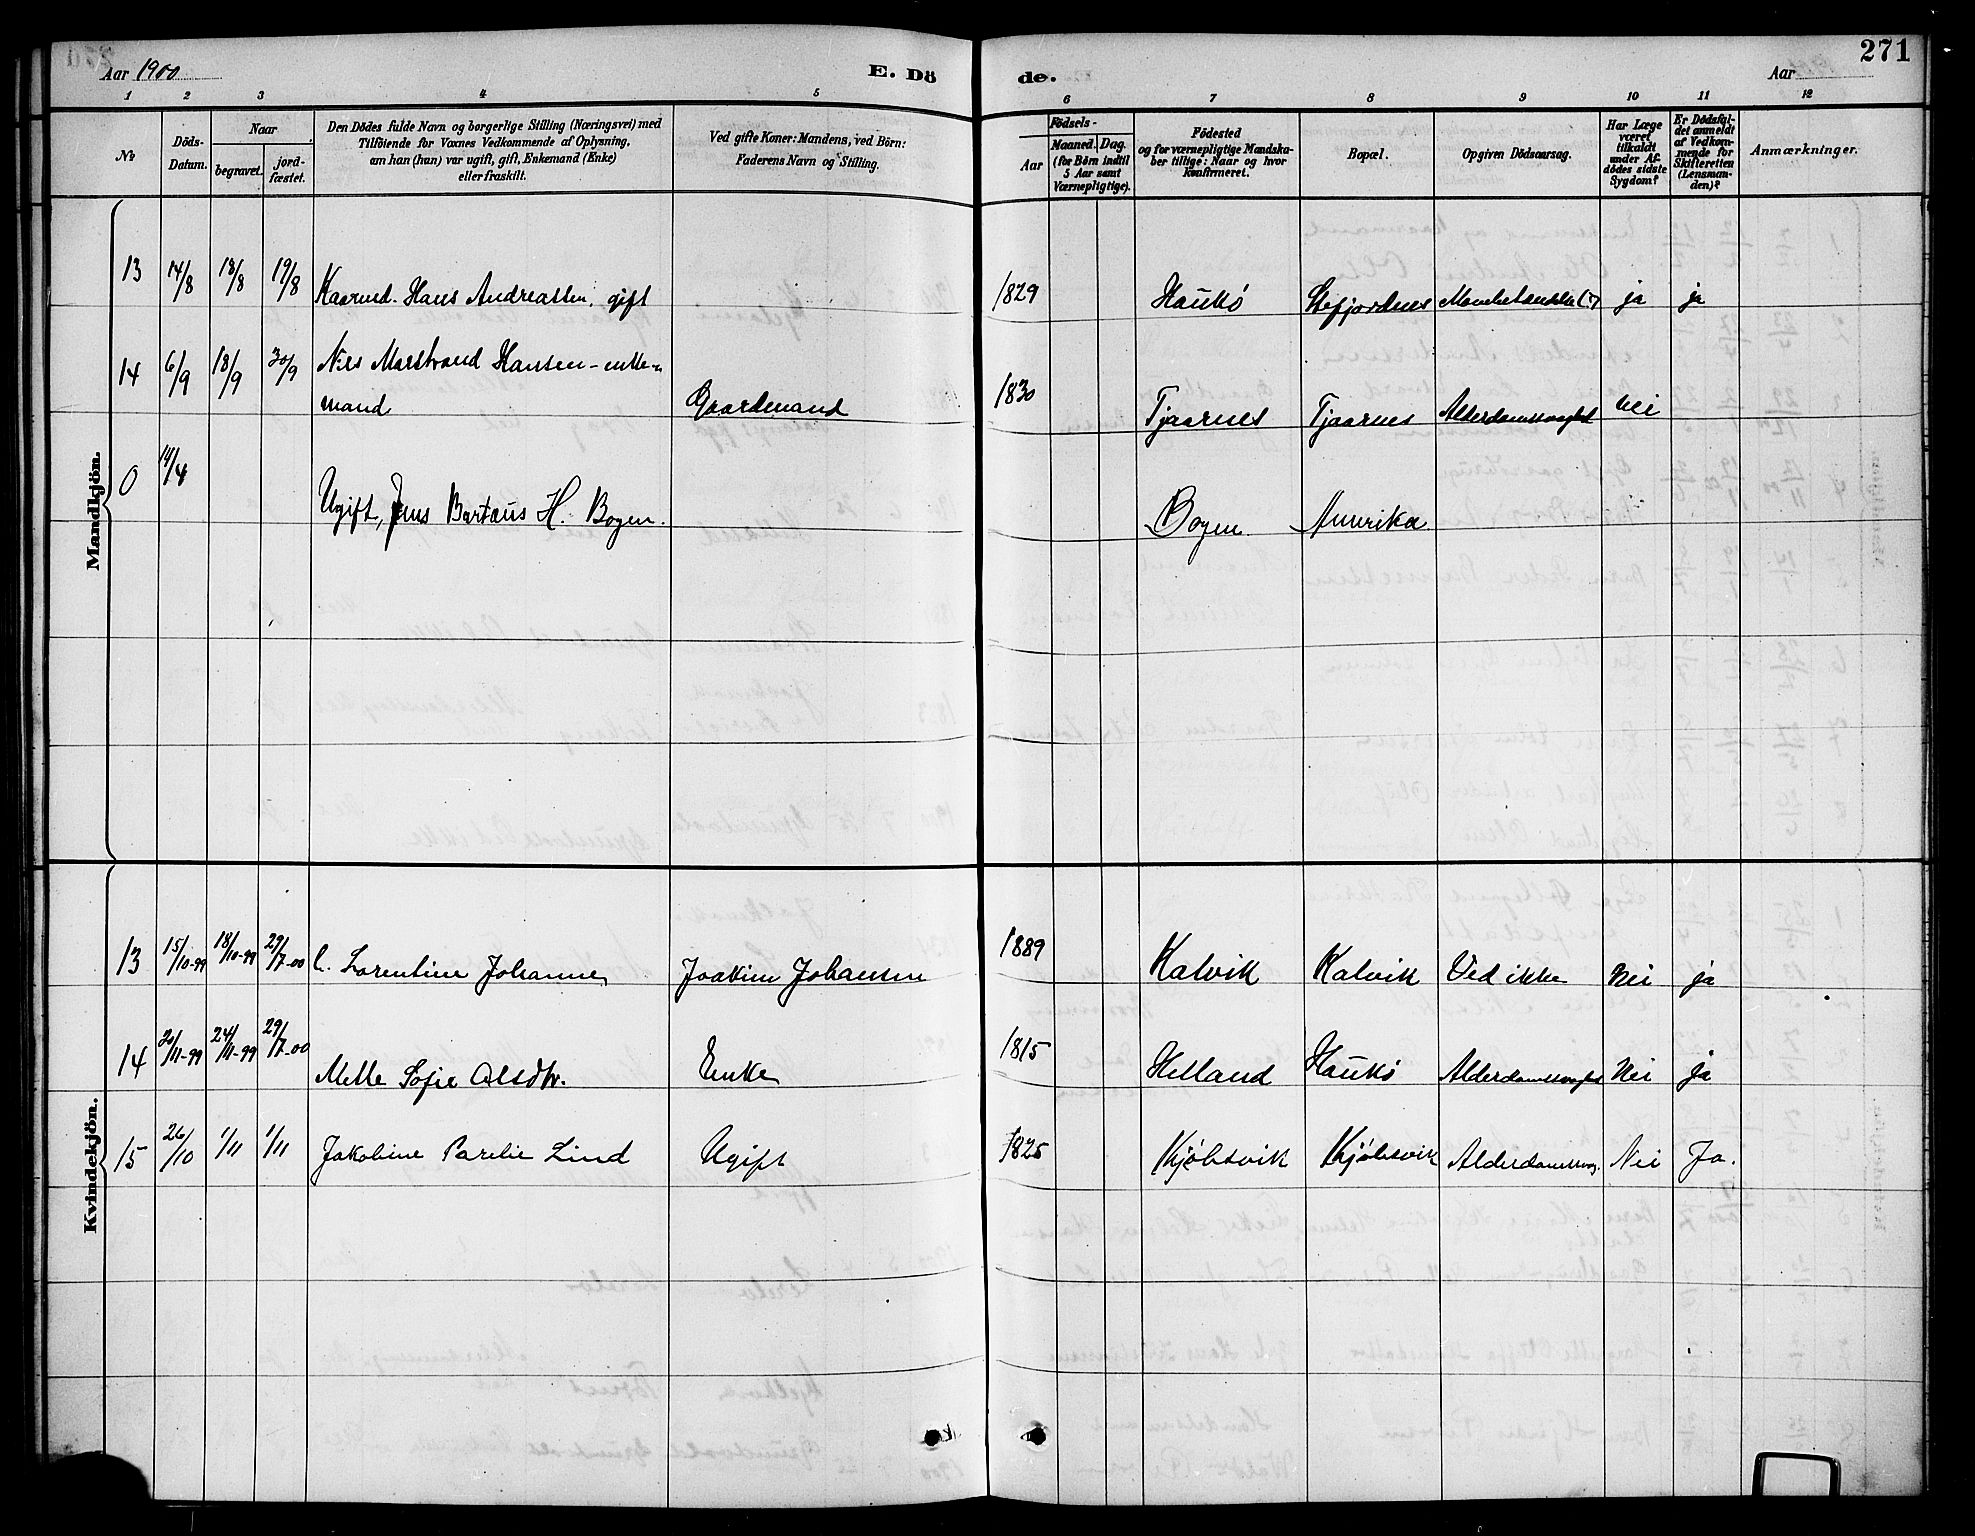 Aar 1900
E. Dö
de.
Aar
271
1 2 3 4 5 6 7 8 9 10 11 12
No
Döds-
Datum.
Naar
begravet.
jord-
fæstet.
Den Dödes fulde Navn og borgerlige Stilling (Næringsvei) med
Tilföiende for Voxnes Vedkommende af Oplysning,
om han (hun) var ugift, gift, Enkemand (Enke)
eller fraskilt.
Ved gifte Koner: Mandens, ved Börn:
Faderens Navn og Stilling.
Födsels-
Aar
Maaned. Dag.
(for Börn indtil
5 Aar samt
Værnepligtige).
Födested
og for værnepligtige Mandska-
ber tillige: Naar og hvor
konfirmeret.
Bopæl.
Opgiven Dödsaarsag.
Har Læge
været
tilkaldt
under Af-
dödes sidste
Sygdom?
Er Dödsfal-
det anmeldt
af Vedkom-
mende for
Skifteretten
(Lensman-
den)?
Anmærkninger.
Mandkjön.
13 14/8 18/8 19/8 Kaarmd. Hans Andreassen, gift 1829 Haukö Stefjordnes ja ja
14 6/9 18/9 30/9 Nils Marstrand Hansen - enke-
mand Gaardmand 1830 Tjaarnes Tjaarnes Alderdomssvaghed Nei
0 14/4 Ugift, Jens Bartæus H. Bogen. Bogen. Amerika
Kvindekjön.
13 15/10-99 18/10-99 29/7-00 Lorentine Johanne Joakim Johansen 1889 Kalvik Kalvik Ved ikke Nei ja
14 20/11-99 24/11-99 29/7-00 Mette Sofie Olsdtr. Enke 1815 Helland Haukö Alderdomssvaghed Nei ja
15 26/10 1/11 1/11 Jakobine Parelie Lind Ugift 1825 Kjöbsvik Kjöbsvik Alderdomssvag. Nei Ja.